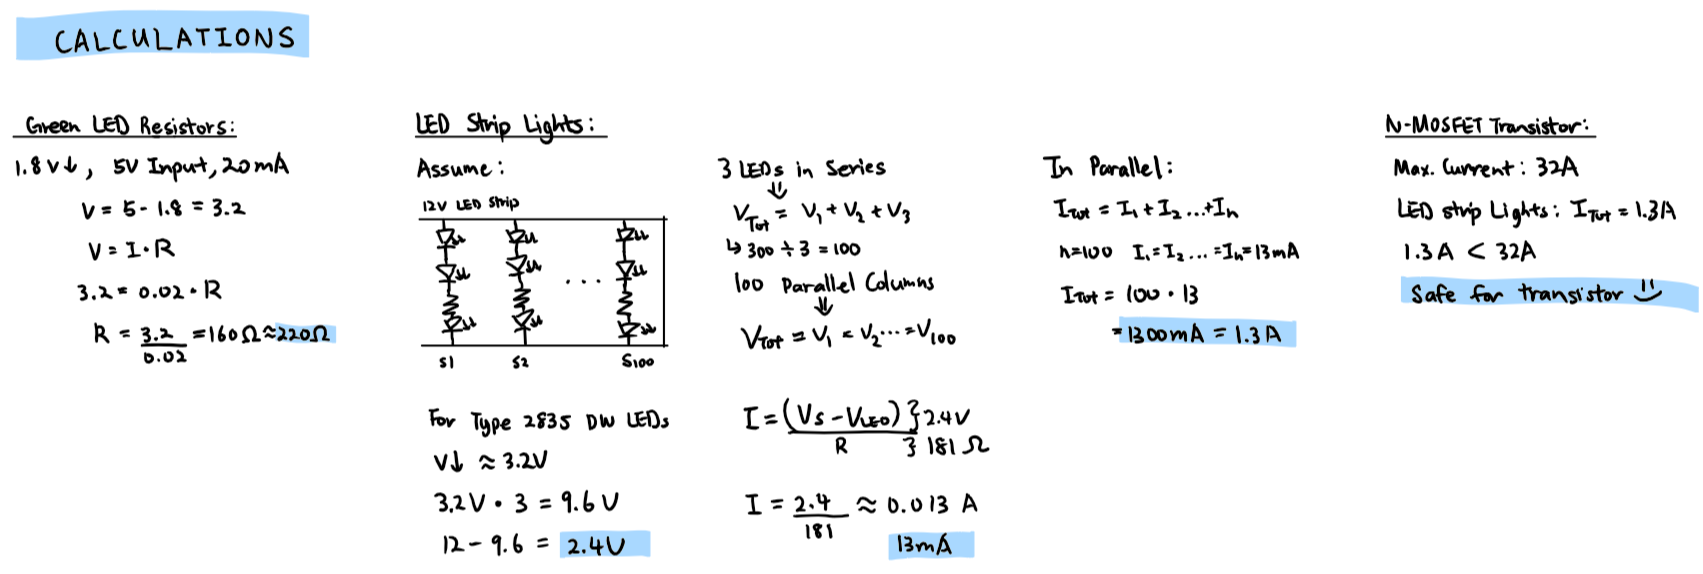 CALCULATIONS
Green LED Resistors:
1.8V↓, 5V Input, 20mA
V = 5 - 1.8 = 3.2
V = I · R
3.2 = 0.02 · R
R = 3.2 / 0.02 = 160Ω ≈ 220Ω
LED Strip Lights:
Assume:
12V LED Strip
...
S1 S2 S100
For Type 2835 DW LEDs
V↓ ≈ 3.2V
3.2V · 3 = 9.6V
12 - 9.6 = 2.4V
3 LEDs in Series
⇓
VTot = V1 + V2 + V3
↳ 300 ÷ 3 = 100
100 Parallel Columns
⇓
VTot = V1 = V2 ... = V100
I = (Vs - VLED) } 2.4V
R } 181 Ω
I = 2.4 / 181 ≈ 0.013 A
13mA
In Parallel:
ITot = I1 + I2 ... + In
n=100 I1 = I2 ... = In = 13mA
ITot = 100 · 13
= 1300mA = 1.3A
N-MOSFET Transistor:
Max. Current: 32A
LED strip Lights: ITot = 1.3A
1.3A < 32A
Safe for transistor